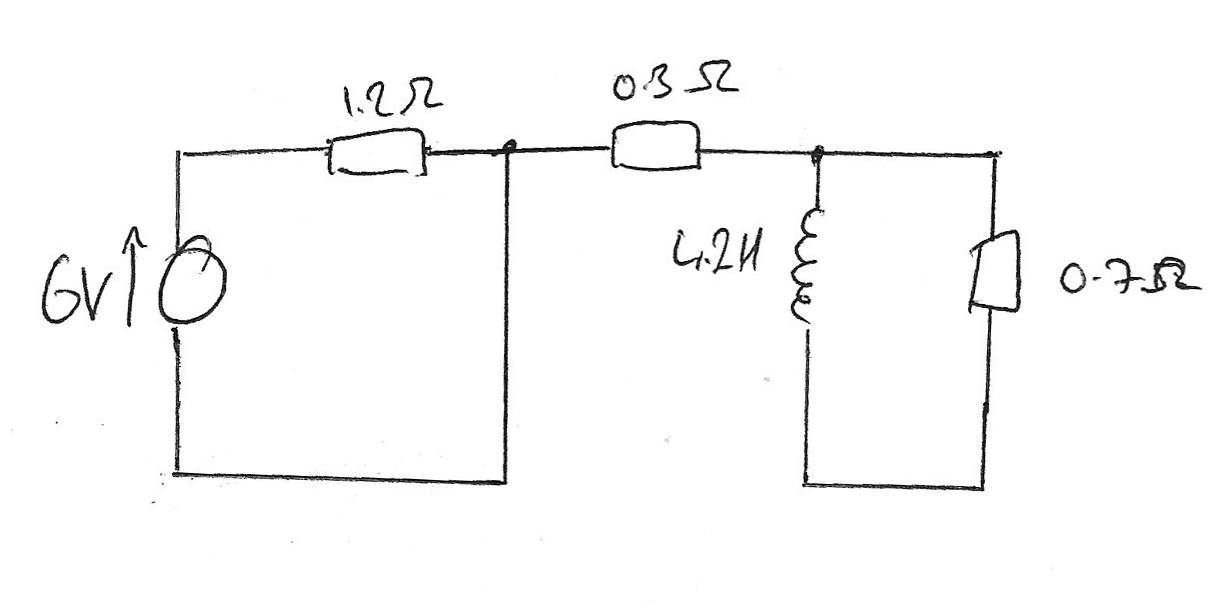 1.2Ω
0.3Ω
6V
4.2H
0.7Ω